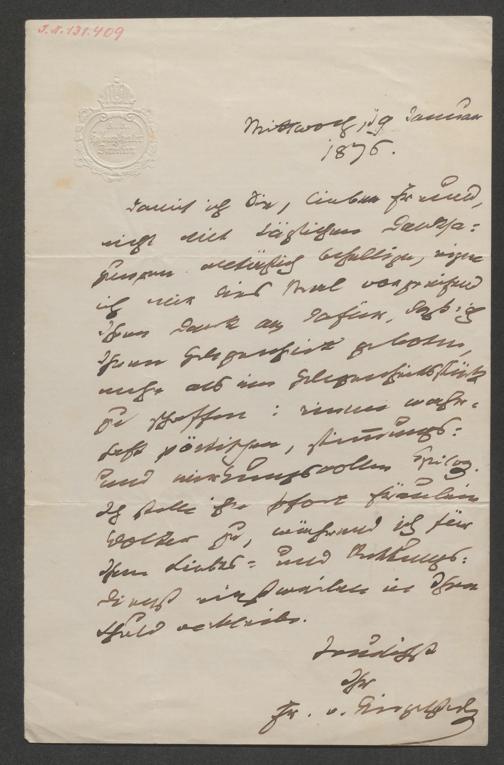 J.N. 131.409
Mittwoch, 19 Januar
1876.
Damit ich Sie, lieber Freund,
nicht mit täglichen Danksa-
gungen behellige,
ich mir dies Mal
Ihren Dank an dafür, daß ich
Ihnen Gelegenheit geboten,
mehr als ein Gelegenheitsstück
zu schaffen: einen wahr-
haft poetischen, stimmungs-
und wirkungsvollen Epilog.
Ich stelle ihn sofort Fräulein
Wolter zu, während ich für
Ihren Liebes- und Rettungs-
dienst einstweilen in Ihrer
Schuld verbleibe.
Ihr
Fr. v. Dingelstedt